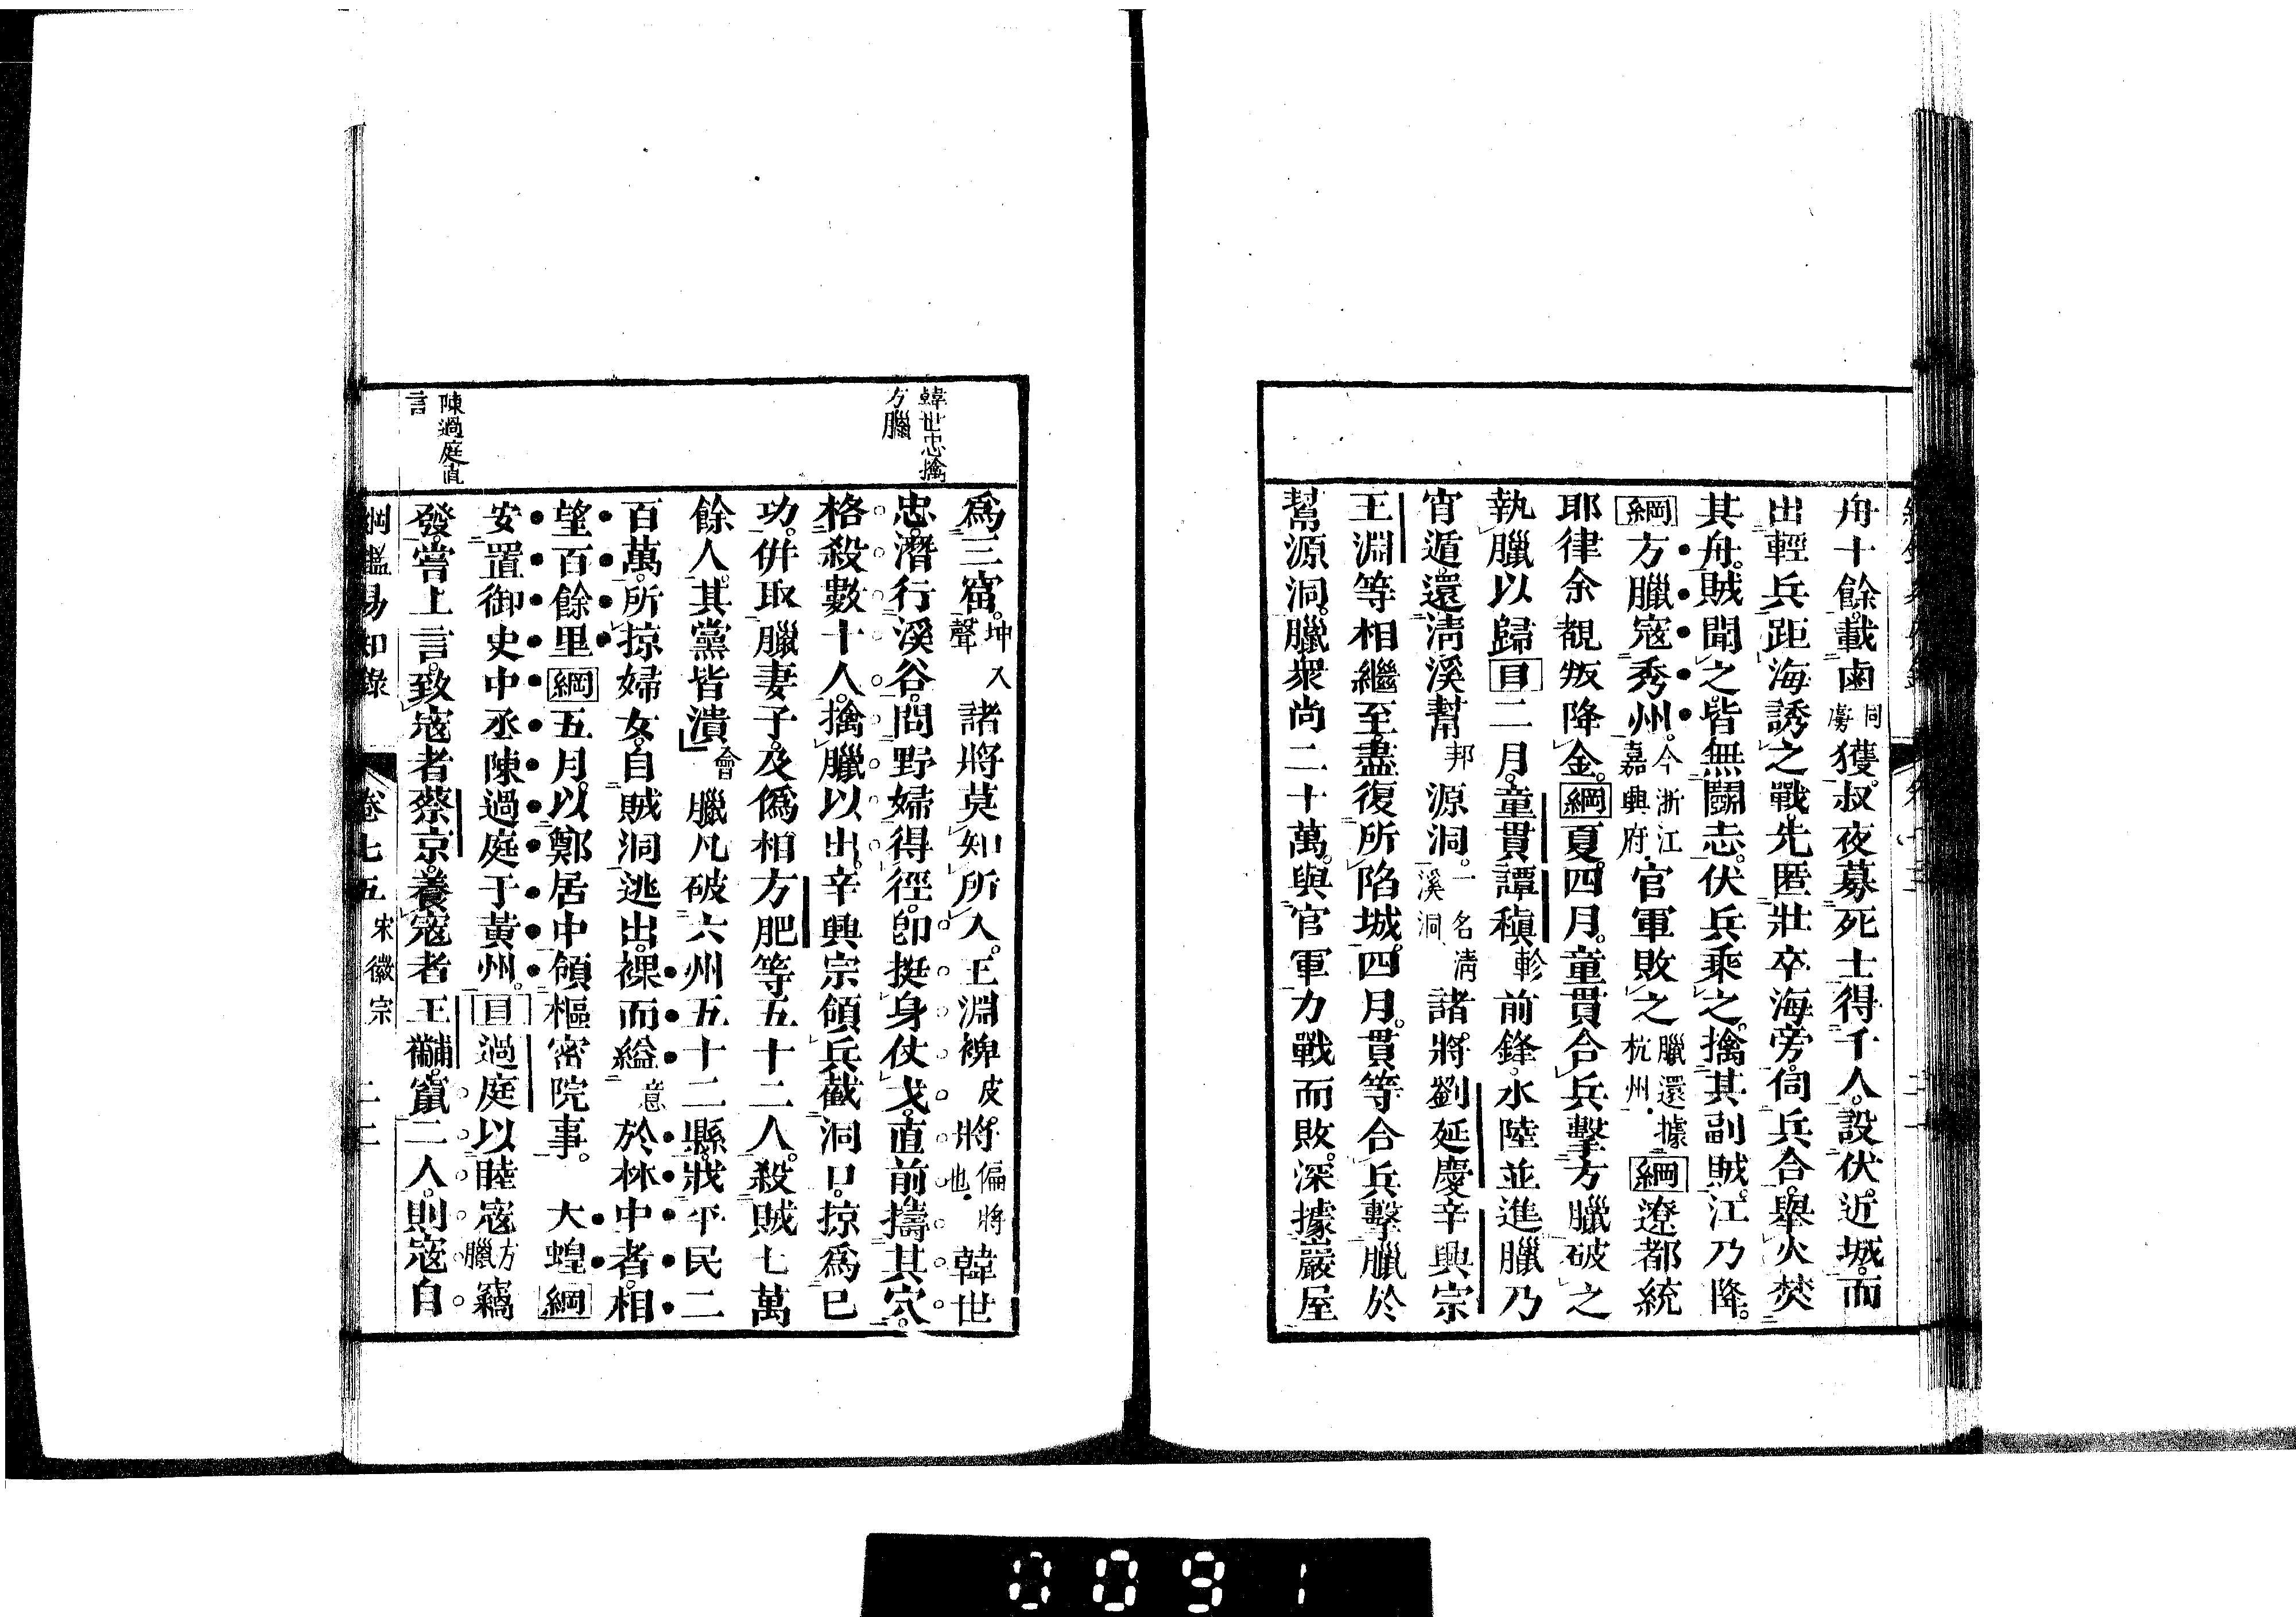 舟十餘。載鹵同虜獲。叔夜募死士得千人。設伏近城。而
出輕兵。距海誘之戰。先匿壯卒海旁。伺兵合。舉火焚
其舟。賊聞之。皆無鬬志。伏兵乘之。擒其副賊。江乃降。
綱方臘寇秀州。今浙江嘉興府。官軍敗之臘還據杭州。綱遼都統
耶律余覩叛降金。綱夏。四月。童貫合兵擊方臘破之
執臘以歸目二月。童貫譚稹軫前鋒。水陸並進。臘乃
宵遁。還淸溪幫邦源洞。一名淸溪洞、諸將。劉延慶辛興宗
王淵等相繼至。盡復所陷城。四月。貫等合兵擊臘於
幫源洞。臘衆尚二十萬。與官軍力戰而敗。深據巖屋
韓世忠擒
方臘
爲三窟。坤入聲諸將莫知所入。王淵裨皮。將偏將也。韓世
忠。潛行溪谷。問野婦得徑。卽挺身仗戈。直前擣其穴。
格殺數十人。擒臘以出。辛興宗領兵截洞口。掠爲已
功。併取臘妻子。及僞相方肥等五十二人。殺賊七萬
餘人。其黨皆潰會臘凡破六州五十二縣。戕平民二
百萬。所掠婦女。自賊洞逃出。裸而縊意於林中者。相
望百餘里綱五月。以鄭居中領樞密院事。大蝗綱
安置御史中丞陳過庭于黃州。目過庭以睦寇方臘竊
陳過庭直
言
發。嘗上言。致寇者蔡京。養寇者王黼。竄二人。則寇自
綱鑑易知錄 卷七五 宋徽宗 二二
0091